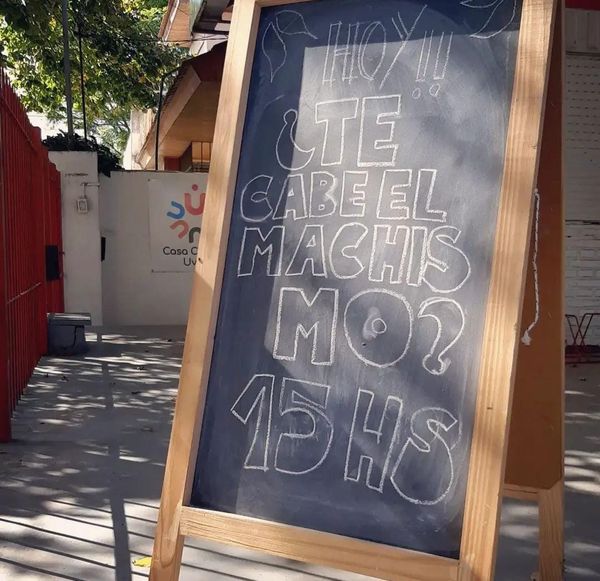 HOY!!
¿TE
CABE EL
MACHIS
MO?
15 HS
Casa C
Uv